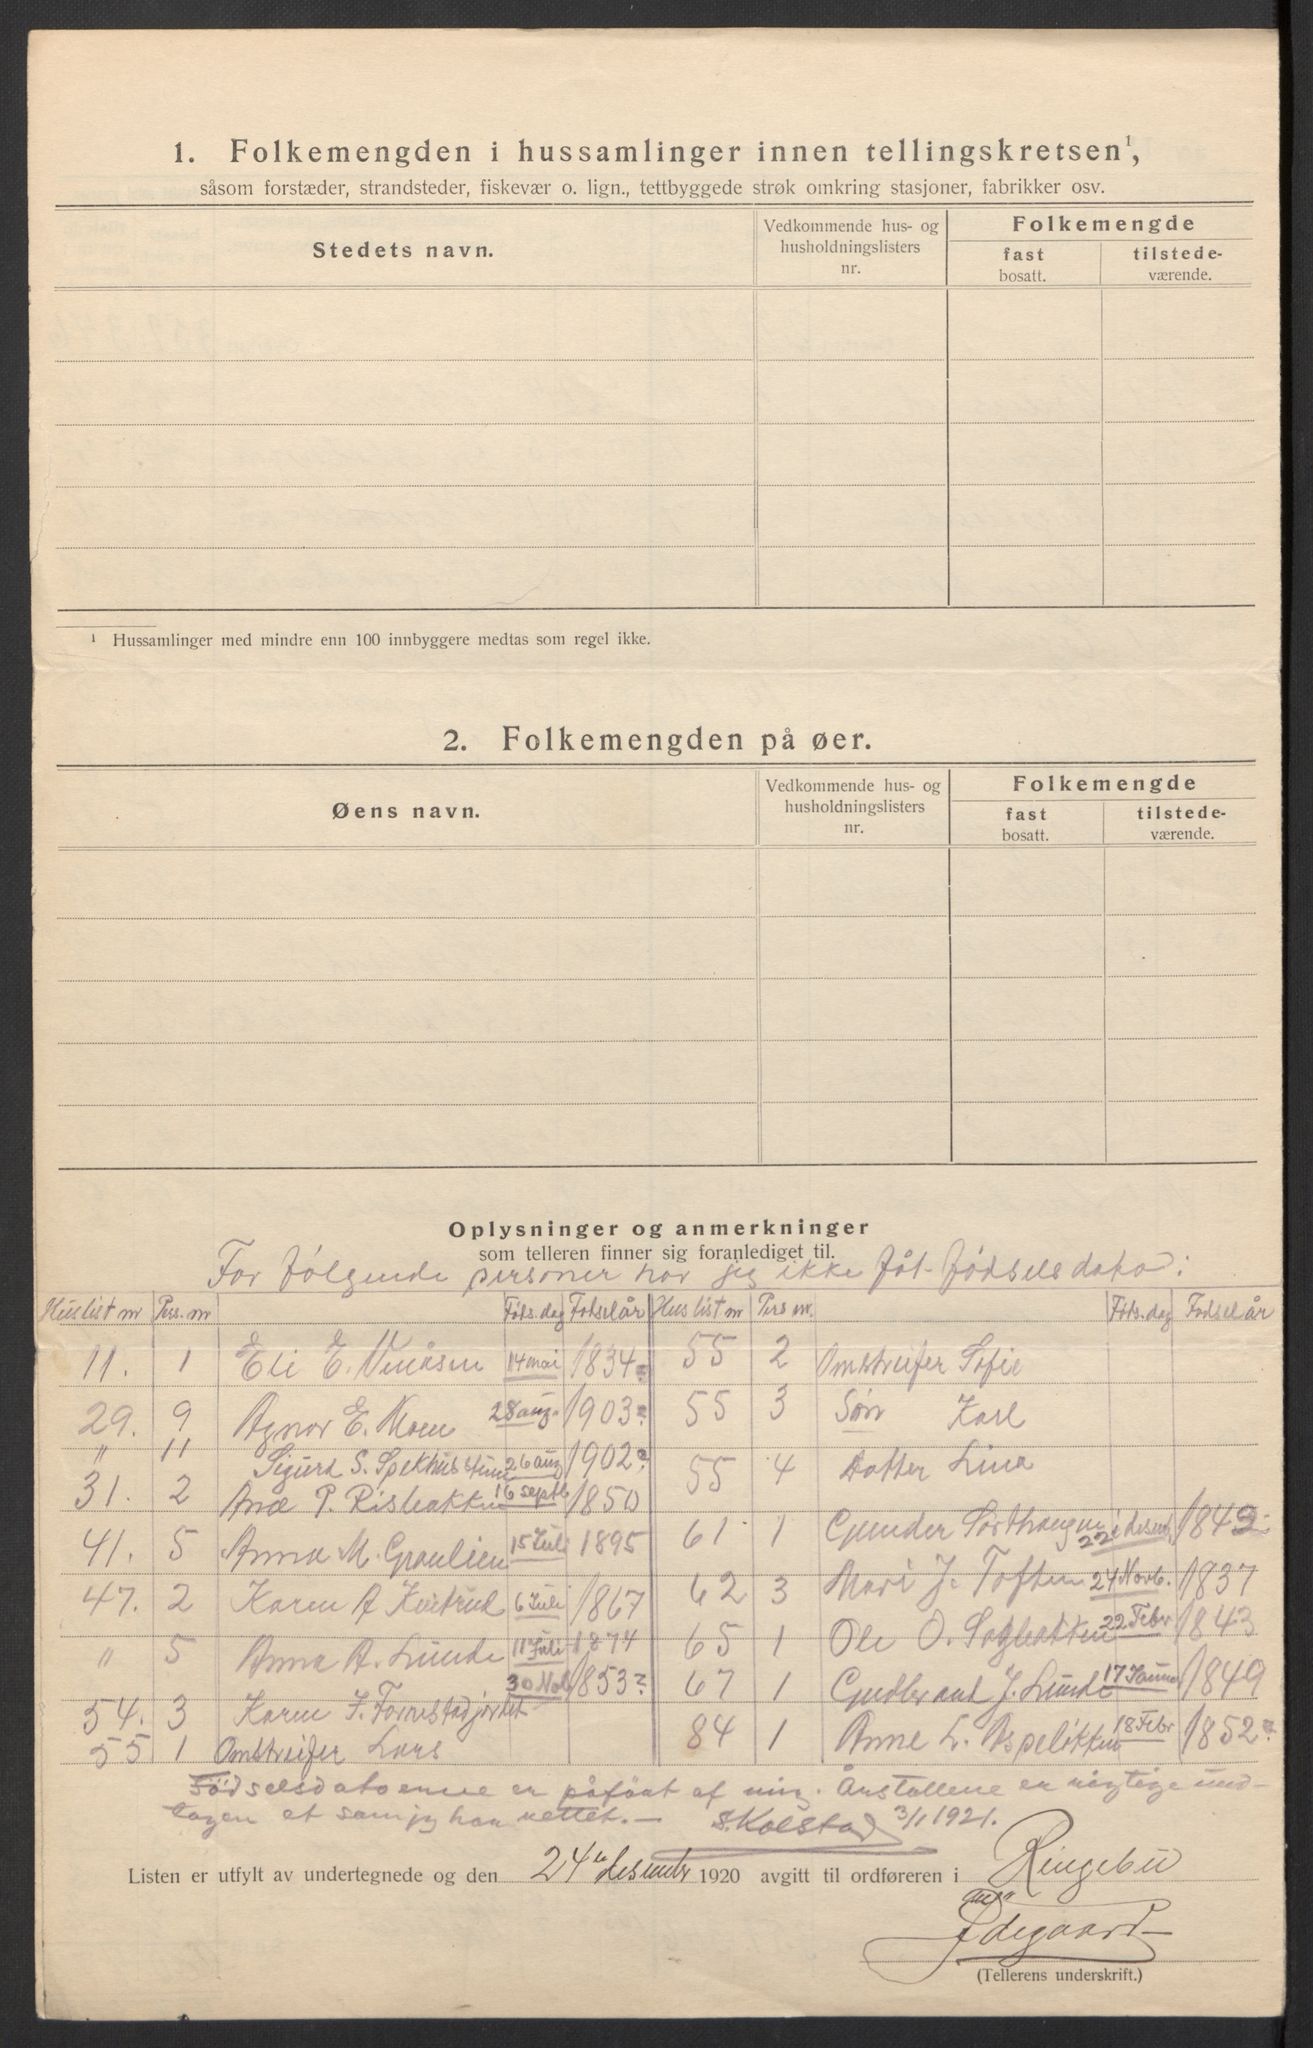 1. Folkemengden i hussamlinger innen tellingskretsen¹,
såsom forstæder, strandsteder, fiskevær o. lign., tettbyggede strøk omkring stasjoner, fabrikker osv.
Stedets navn.
Vedkommende hus- og
husholdningslisters
nr.
Folkemengde
fast
bosatt.
tilstede-
værende.
¹ Hussamlinger med mindre enn 100 innbyggere medtas som regel ikke.
2. Folkemengden på øer.
Øens navn.
Vedkommende hus- og
husholdningslisters
nr.
Folkemengde
fast
bosatt.
tilstede-
værende.
Oplysninger og anmerkninger
som telleren finner sig foranlediget til.
For følgende personer har jeg ikke fåt fødselsdato:
Huslist nr Pers. nr Føds. dag Fødselår
11. 1 Eli E. 14 mai 1834?
29. 9 Agnor E. Moen 28 aug. 1903?
" 11 Sigurd S. 26 aug 1902?
31. 2 P. Risbakken 16 septb 1850
41. 5 Anna M. Graulien 15 Juli 1895
47. 2 Karen A 6 Juli 1867
" 5 Anna A. Lunde 11 Juli 1874
54. 3 Karen 30 Nob 1853?
55 1 Omstreifer Lars
Huslist nr Pers nr. Føds. dag Fødselår
55 2 Omstreifer Sofie
55 3 Søn Karl
55 4 Datter Lina
61 1 Gunder 22 desmb 1842
62 3 Mari J. Toften 24 Novb. 1837
65 1 Ole O. 22 Febr 1843
67 1 Gudbrand J. Lunde 17 Januar 1849
84 1 Anne L. Aspeløkken 18 Febr 1852?
Fødselsdatoenne er påført af mig. Årstallene er rigtige und-
tagen et som jeg har rettet. — S. Kolstad 3/1 1921.
Listen er utfylt av undertegnede og den 24 desember 1920 avgitt til ordføreren i Ringebu
Ødegaard
(Tellerens underskrift.)